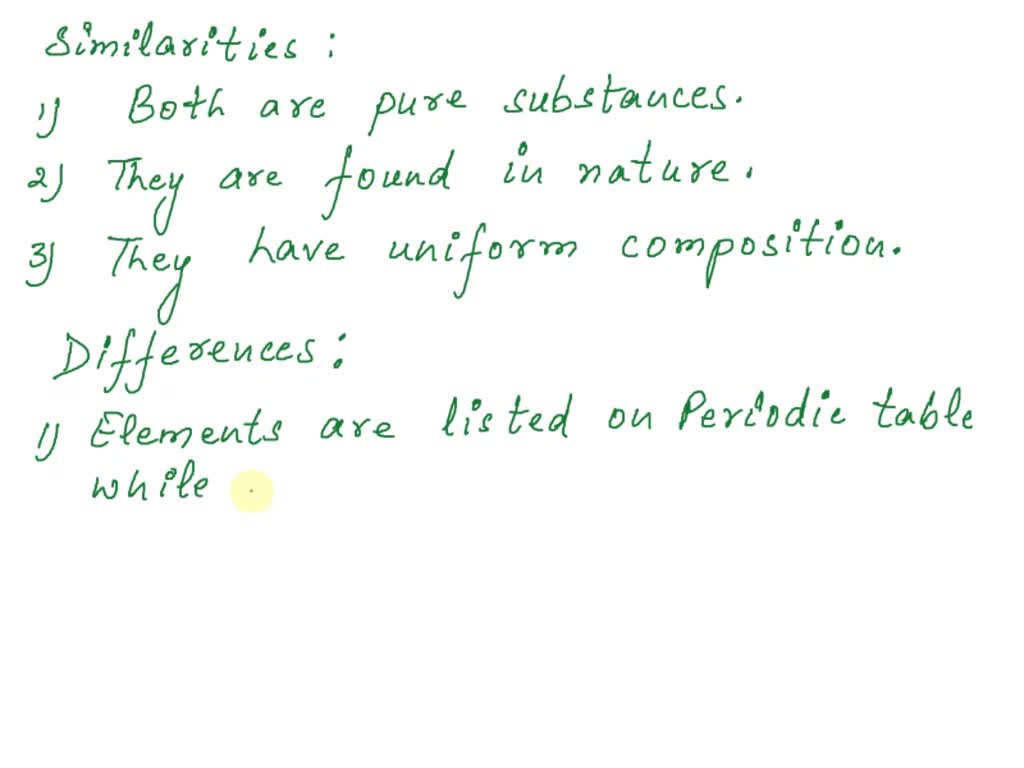 Similarities :
1) Both are pure substances.
2) They are found in nature.
3) They have uniform composition.
Differences :
1) Elements are listed on Periodic table
while